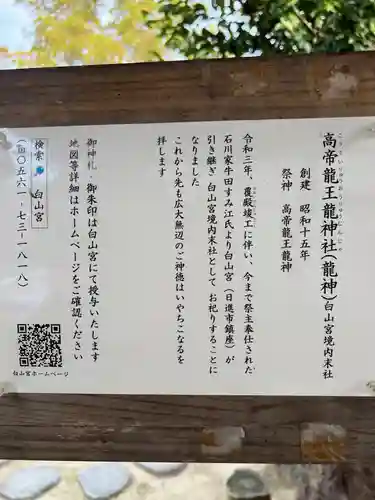 高帝龍王龍神社(龍神)白山宮境内末社
こうていりゅうおうりゅうじんじゃ
創建 昭和十五年
祭神 高帝龍王龍神
令和三年、覆殿竣工に伴い、今まで祭主奉仕された
石川家牛田すみ江氏より白山宮(日進市鎮座)が
引き継ぎ 白山宮境内末社として お祀りすることに
なりました
これから先も広大無辺のご神徳はいやちこなるを
拝します
御神札・御朱印は白山宮にて授与いたします
地図等詳細はホームページをご確認ください
検索 白山宮
(☎〇五六一-七三-一八一八)
白山宮ホームページ